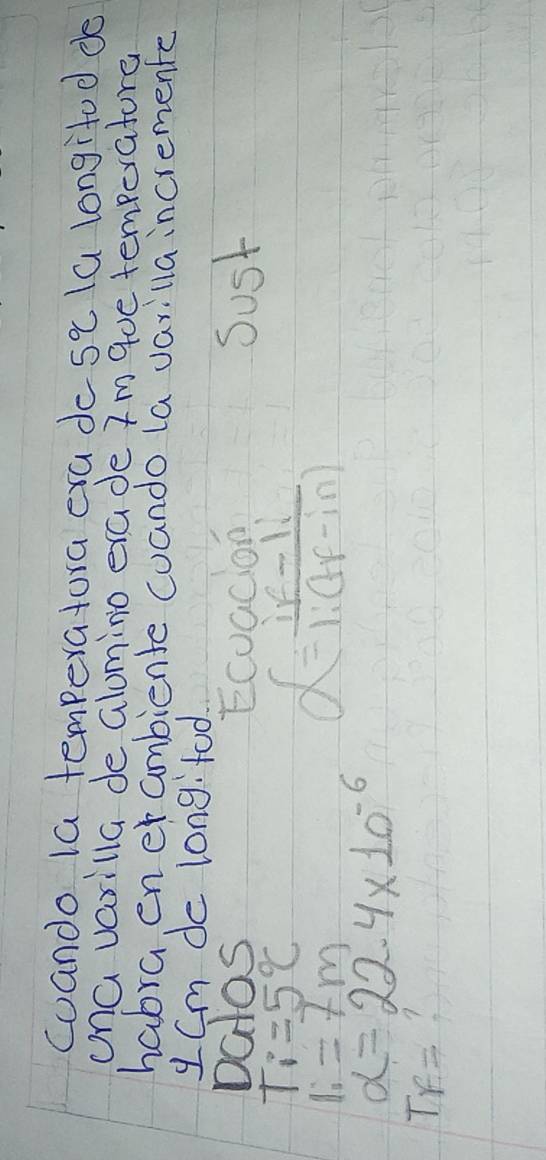 Cuando la temperatura era de 5℃ la longitud de
una varilla de alumino era de 7m que temperatura
habra en el ambiente cuando la varilla incremente
1 Cm de longitud.
Datos Ecuación Sust
Ti = 5℃
li = 7m α = lf - li / li(Tf - in)
α = 22.4 x 10⁻⁶
Tf = ?